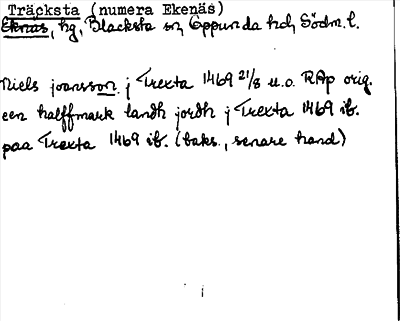 Träcksta (numera Ekenäs)
Ekenäs, hg, Blacksta sn, Oppunda hd, Södm. l.
Niels joansson j Trexta 1469 21/8 u.o. RAp orig.
een halffmark landh jordh j Trexta 1469 ib.
paa Trexta 1469 ib. (baks., senare hand)